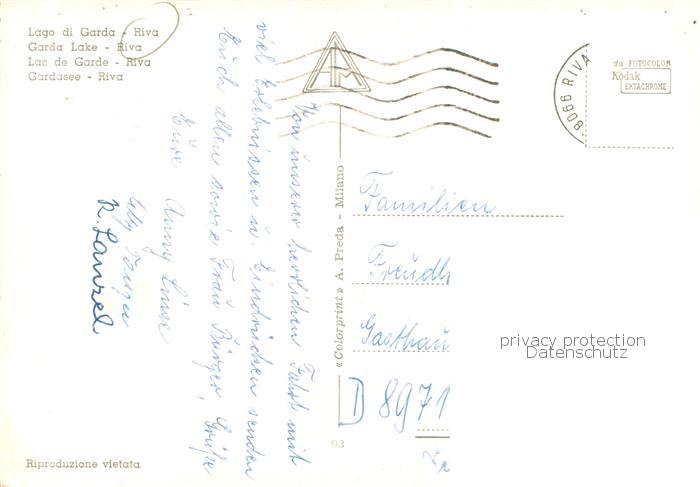 Lago di Garda - Riva
Garda Lake - Riva
Lac de Garde - Riva
Gardasee - Riva
Von unserer herrlichen Fahrt mit
viel Erlebnissen u. Eindrücken senden
Euch allen sowie Frau Bürger, Grüße
Eure Anny Linse
R. Lanzel
«Colorprint» A. Preda - Milano
93
8066 RIVA
da FOTOCOLOR
Kodak
EKTACHROME
Familien
Freudl
Gasthau
D 8971
privacy protection
Datenschutz
Riproduzione vietata